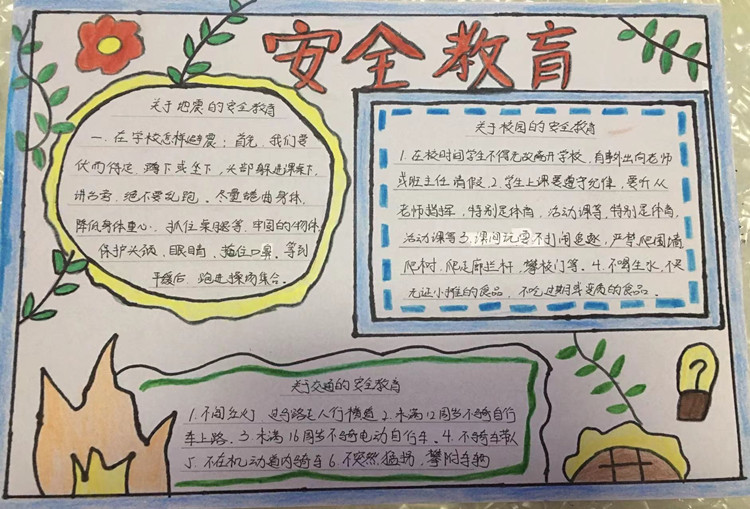 安全教育
关于地震的安全教育
一、在学校怎样避震：首先，我们要
伏而待定，蹲下或坐下，头部躲进课桌下，
讲台旁，绝不要乱跑。尽量蜷曲身体，
降低身体重心，抓住桌腿等，牢固的物体，
保护头颈，眼睛，捂住口鼻。等到
平缓后，跑进操场集合。
关于校园的安全教育
1.在校时间学生不得无故离开学校，有事外出向老师
或班主任请假.2.学生上课要遵守纪律，要听从
老师指挥，特别是体育，活动课等，特别是体育，
活动课等3.课间玩耍不打闹追逐，严禁爬围墙
爬树，爬走廊拦杆，攀校门等。4.不喝生水，不买
无证小摊的食品，不吃过期变质的食品。
关于交通的安全教育
1.不闯红灯 过马路走人行横道 2.未满12周岁不骑自行
车上路.3.未满16周岁不骑电动自行车。4.不骑车带人
5.不在机动道内骑车 6.不突然猛拐，攀附车辆